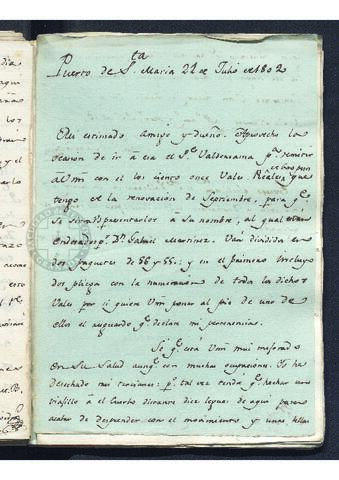 Puerto de S.ta Maria 22 de Julio de 1802
Mi estimado amigo y dueño. Aprovecho la
ocasion de ir á esa el S.r Valderrama p.a remitir
al mi con el los ciento once Vales Reales, que
tengo de la renovacion de Septiembre, para q.e
se sirva presentarlos á su nombre, al qual
endosados p.r D.n Gabriel Martinez. Van divididos en
dos paquetes de 56 y 55: y en el primero incluyo
dos pliegos con la numeracion de todos los dichos
Vales por si quiere Vm poner al pie de uno de
ellos el resguardo q.e declare mi pertenencia.
Se q.e está Vm mui mejorado
en su Salud aunq.e con muchas ocupaciones. Yo he
desechado mis tercianas: p.o tal vez tendré q.e hechar un
viagillo á el Cuerbo distante dos leguas de aqui para
acabar de despender con el movimiento y unas